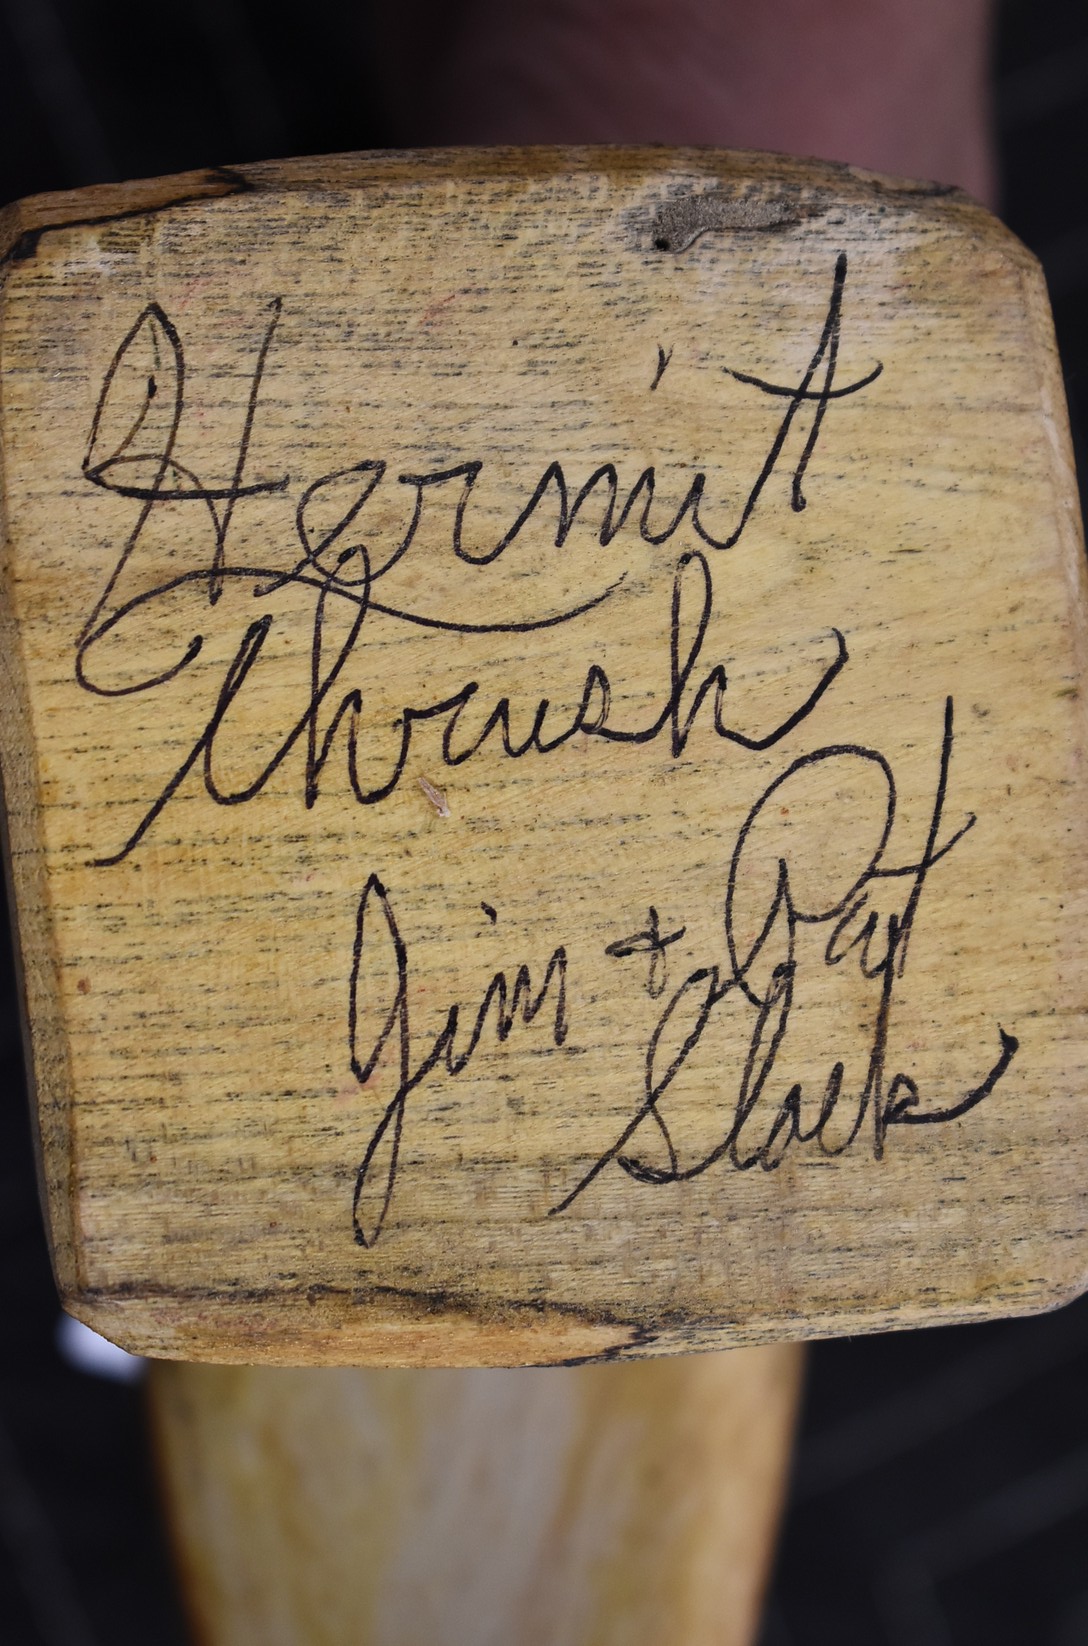 Hermit
Thrush
Jim + Pat
Slack